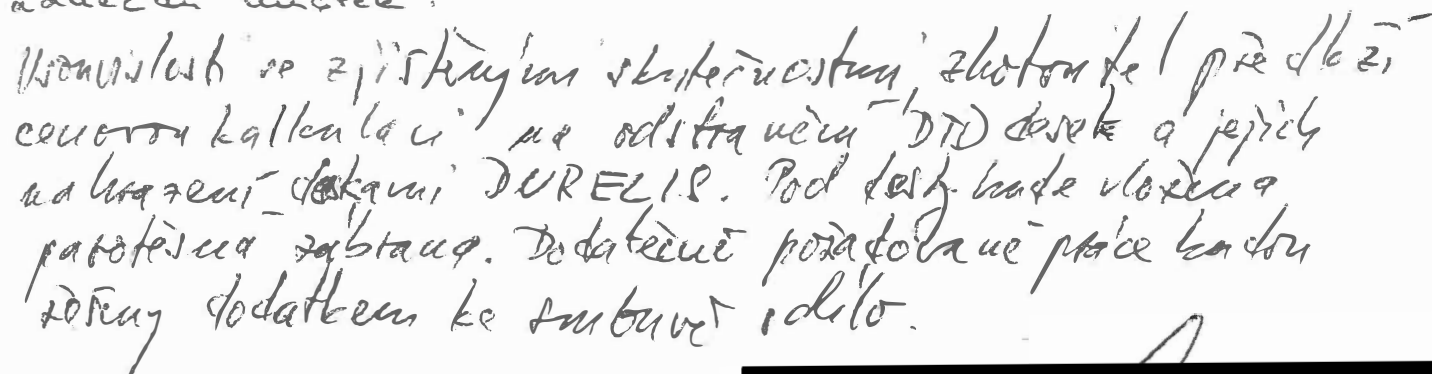 V souvislosti se zjištěnými skutečnostmi, zhotovitel předloží
cenovou kalkulaci na odstranění DTD desek a jejich
nahrazení deskami DURELIS. Pod desky bude vložena
parotěsná zábrana. Dodatečně požadované práce budou
řešeny dodatkem ke smlouvě o dílo.